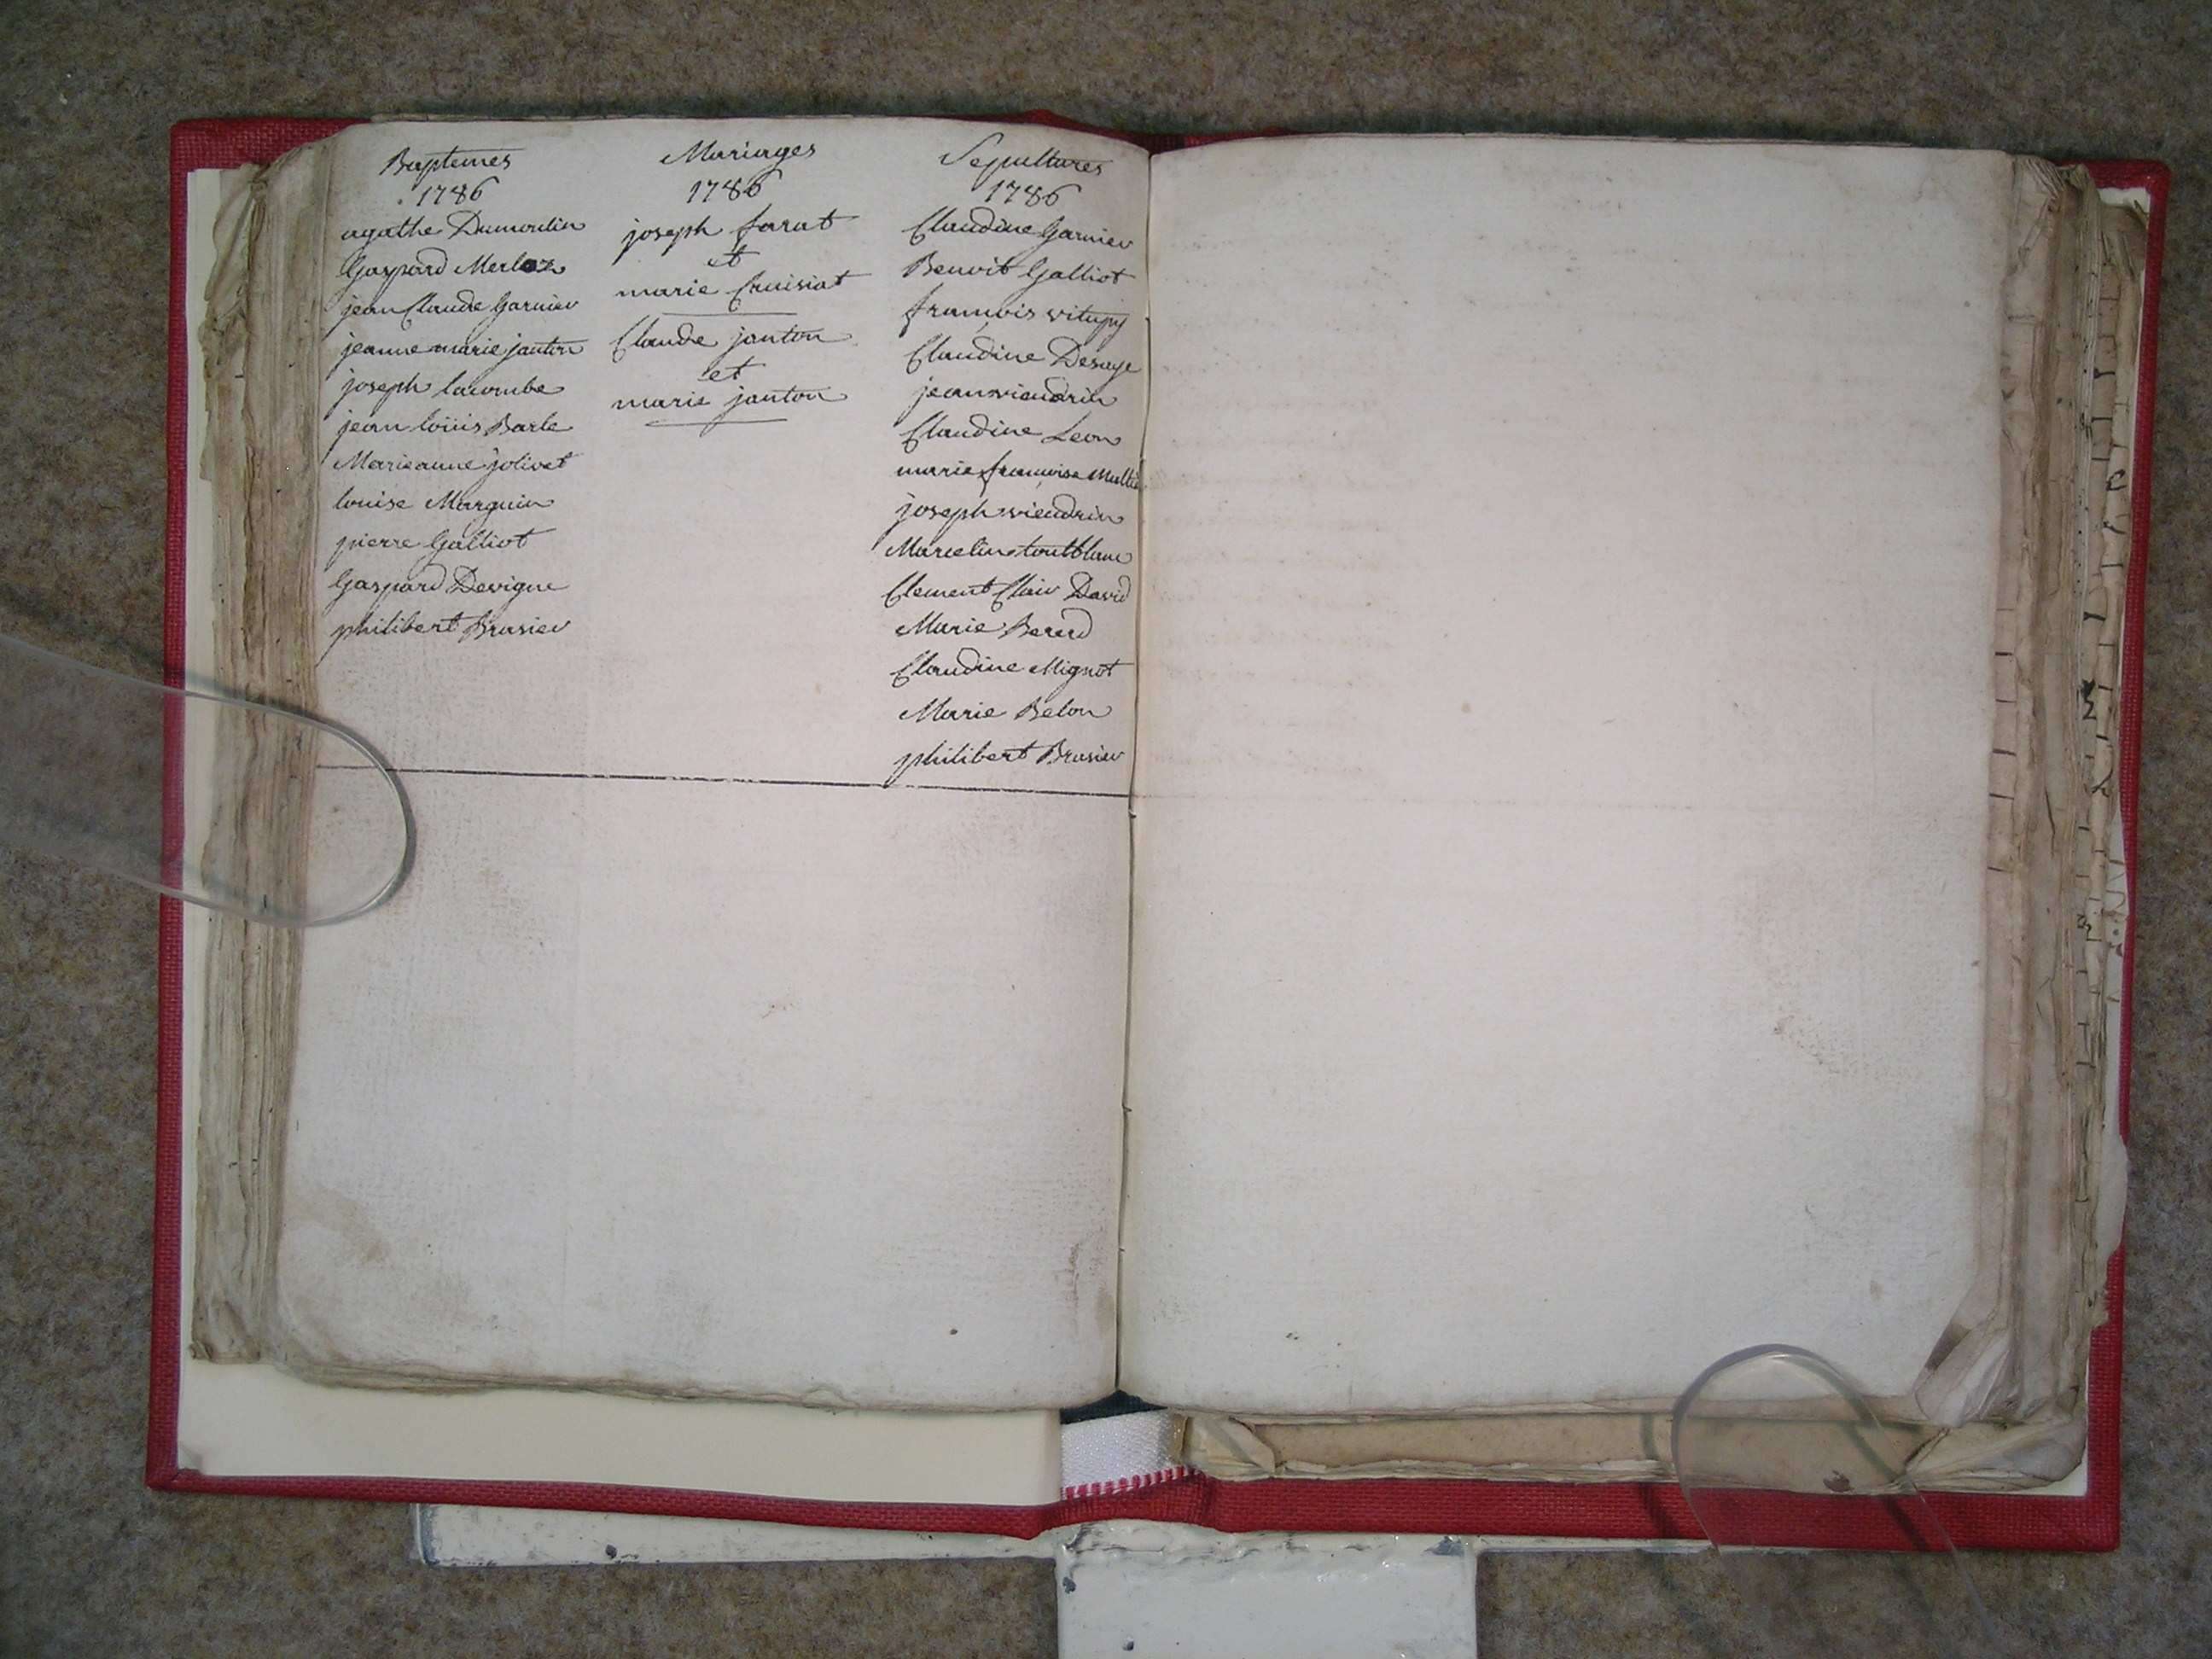 Baptemes
1786
agathe Dumoulin
Gaspard Merloz
jean Claude Garnier
jeanne marie janton
joseph lacombe
jean loüis Barle
Marieanne jolivet
louise Marguin
pierre Galliot
Gaspard Devigne
philibert Brasier
Mariages
1786
joseph farat
et
marie Cruisiat
Claude janton
et
marie janton
Sepultures
1786
Claudine Garnier
Benoit Galliot
françois vitupy
Claudine Desaye
jean viendrin
Claudine Leon
marie françoise
joseph viendrin
Marcelin toutblanc
Clement Clair David
Marie Bererd
Claudine Mignot
Marie Belon
philibert Brasier